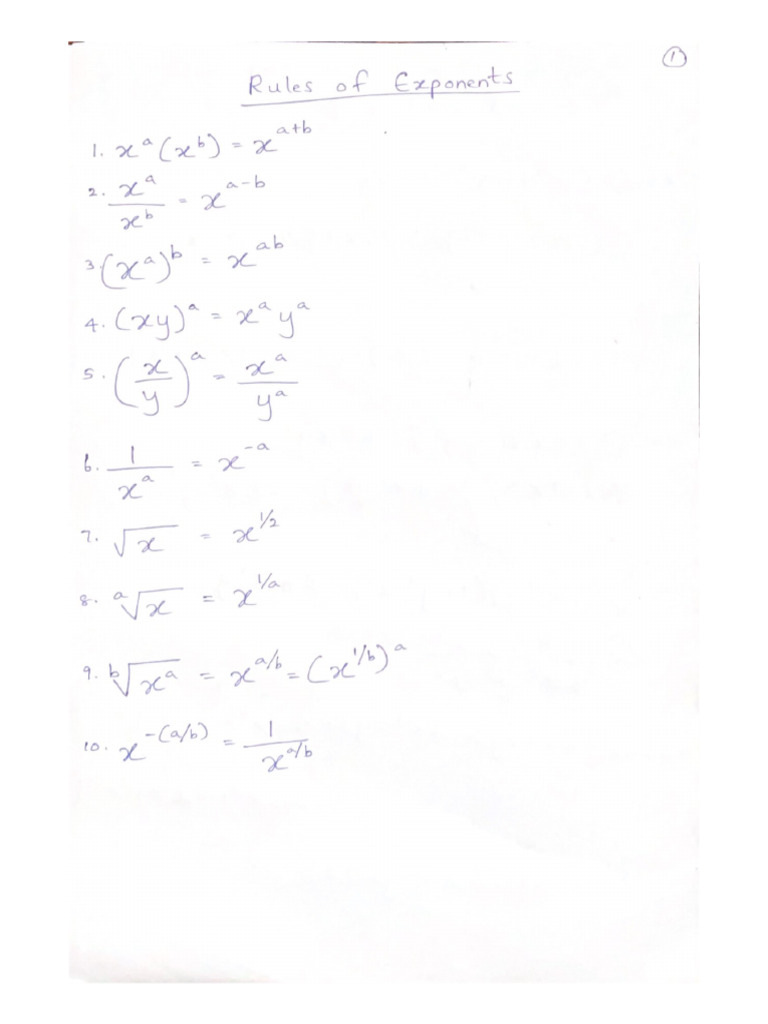 ①
Rules of Exponents
1. xᵃ(xᵇ) = xᵃ⁺ᵇ
2. xᵃ/xᵇ = xᵃ⁻ᵇ
3. (xᵃ)ᵇ = xᵃᵇ
4. (xy)ᵃ = xᵃyᵃ
5. (x/y)ᵃ = xᵃ/yᵃ
6. 1/xᵃ = x⁻ᵃ
7. √x = x^(1/2)
8. ᵃ√x = x^(1/a)
9. ᵇ√xᵃ = x^(a/b) = (x^(1/b))ᵃ
10. x^(-(a/b)) = 1/x^(a/b)